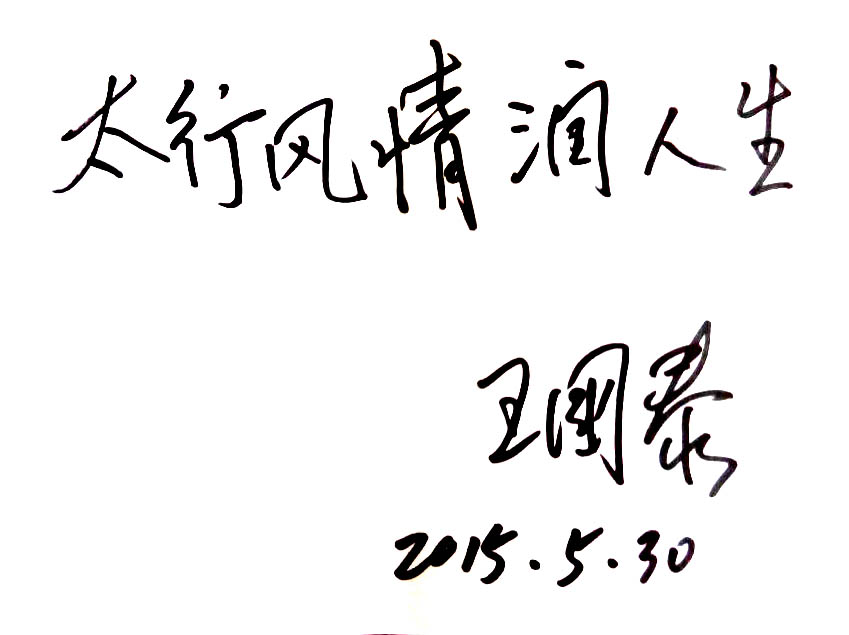 太行风情润人生
王国泰
2015.5.30